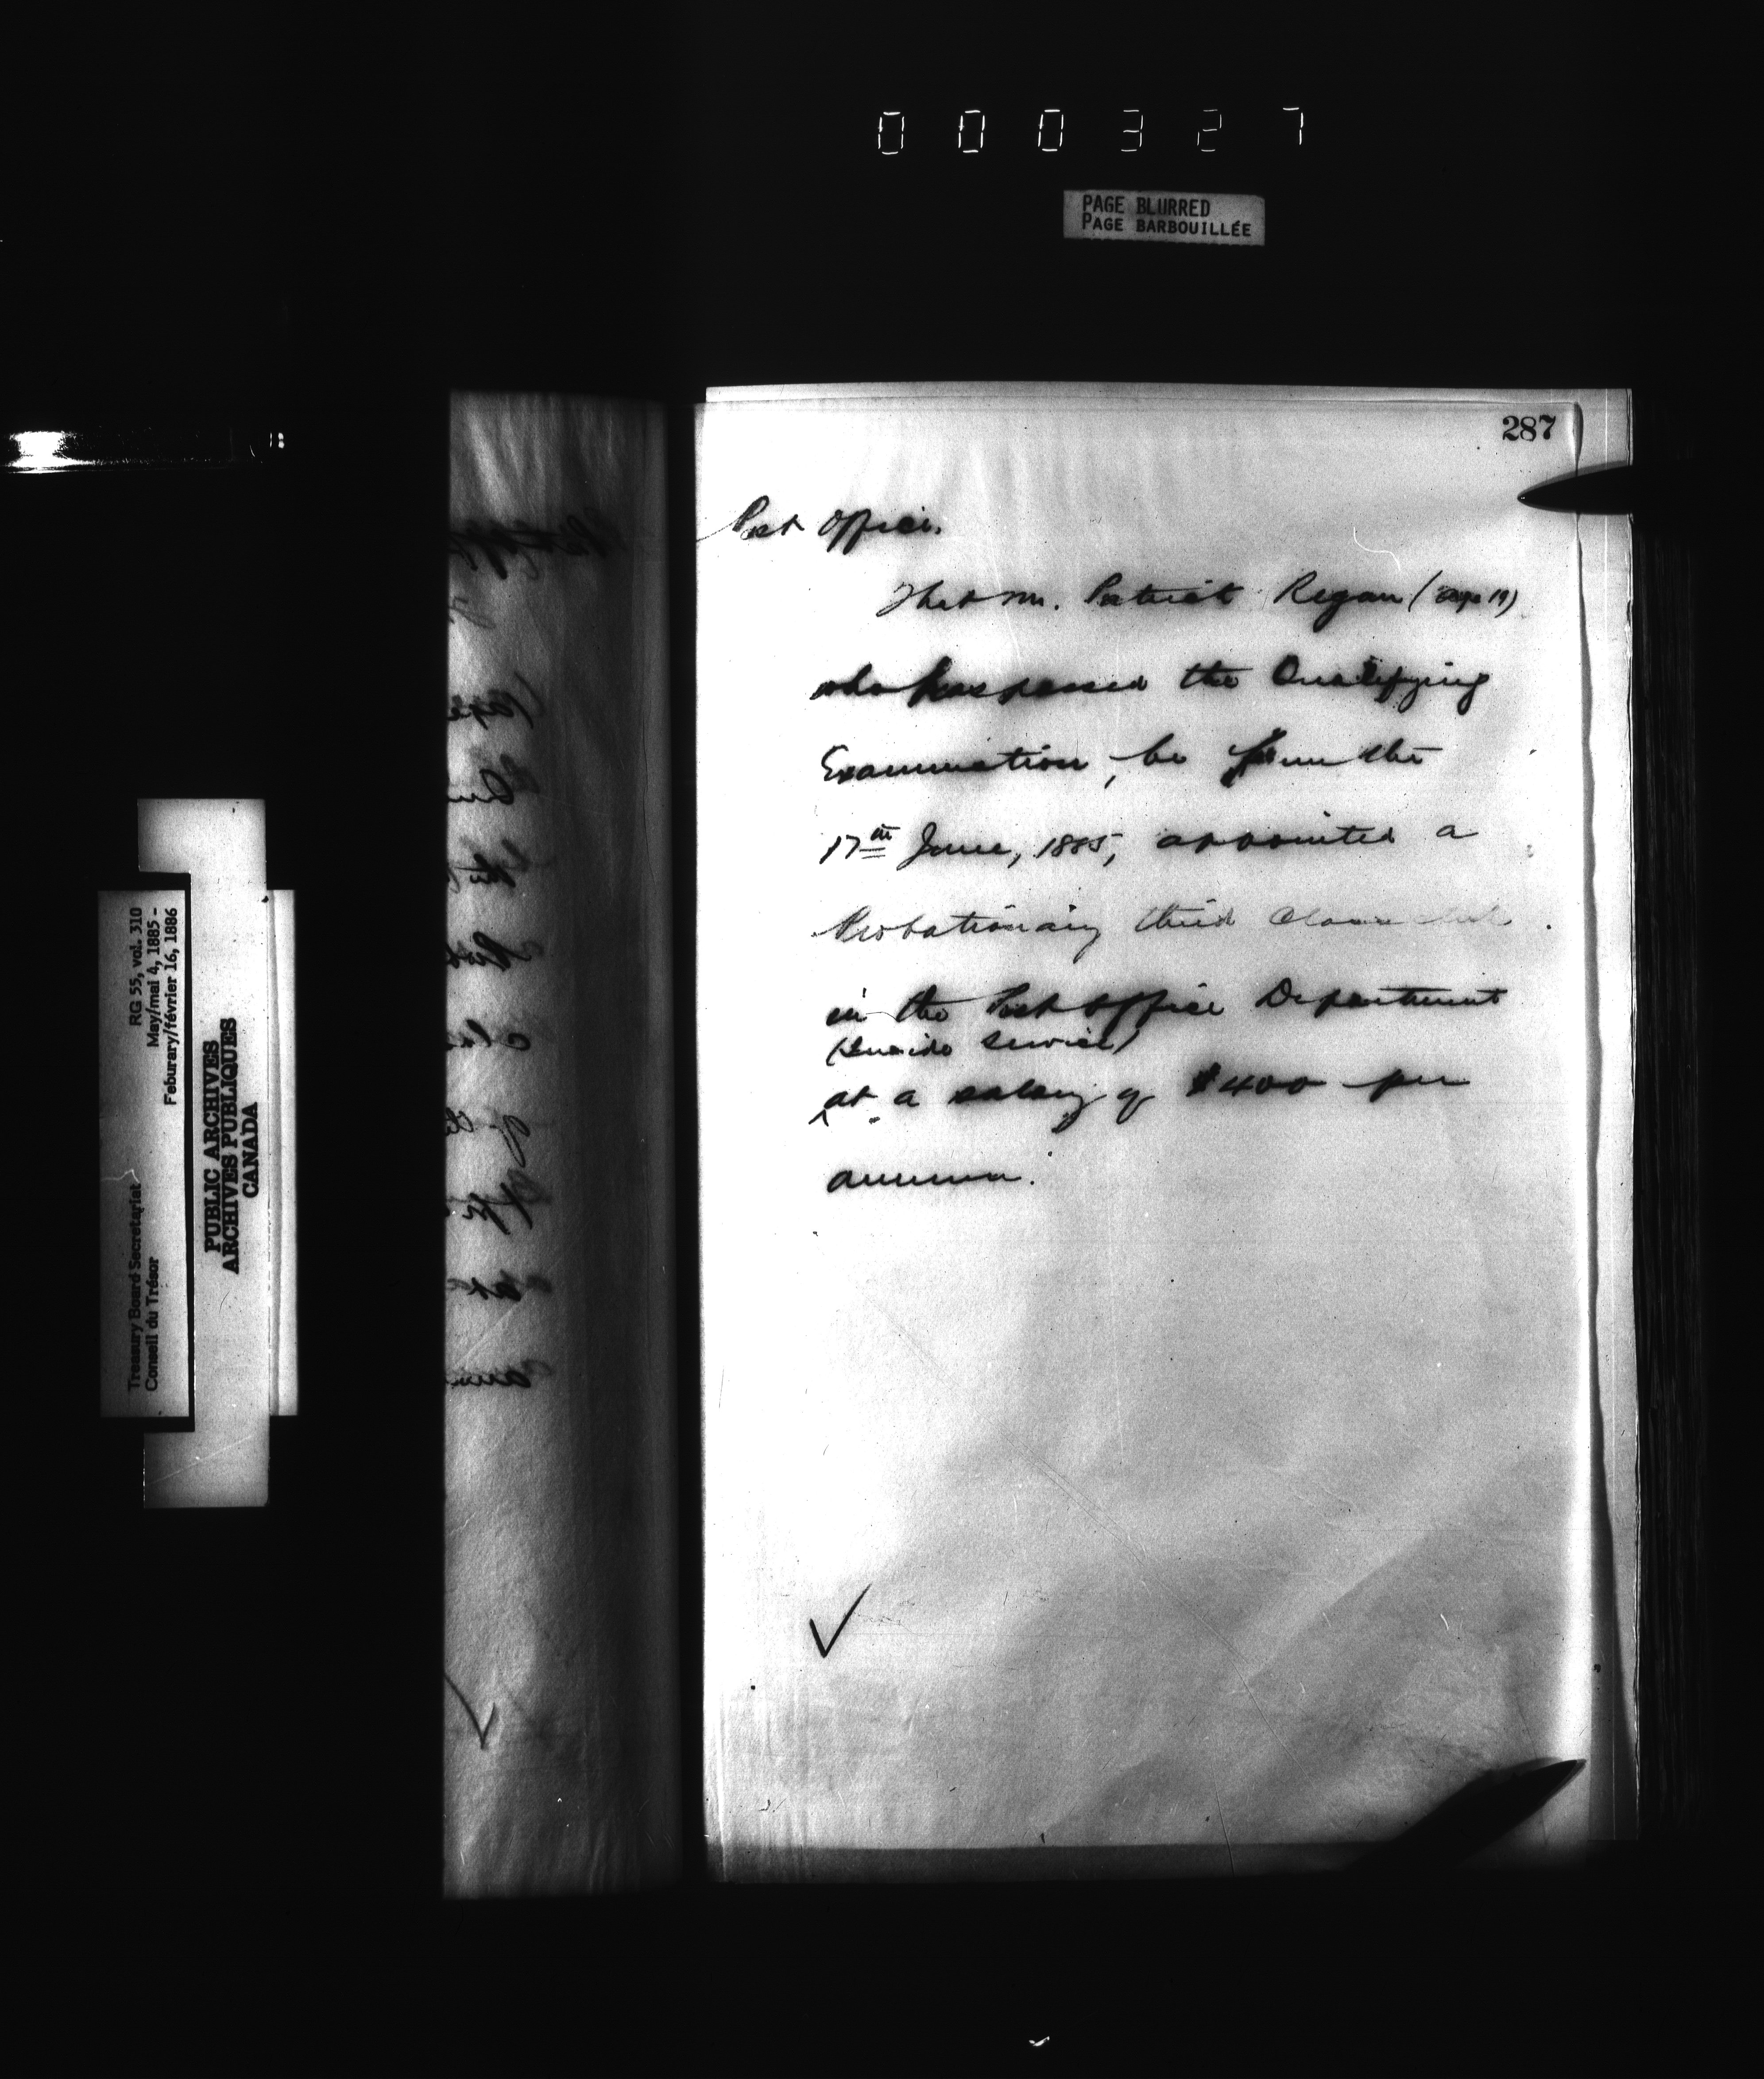 000327
PAGE BLURRED
PAGE BARBOUILLÉE
287
Post Office.
That Mr. Patrick Regan (age 19)
who has passed the Qualifying
Examination, be from the
17th June, 1885, appointed a
Probationary third Class Clerk
in the Post Office Department
(Inside Service)
at a salary of $400 per
annum.
Treasury Board Secretariat RG 55, vol. 310
Conseil du Trésor May/mai 4, 1885 -
Feburary/février 16, 1886
PUBLIC ARCHIVES
ARCHIVES PUBLIQUES
CANADA